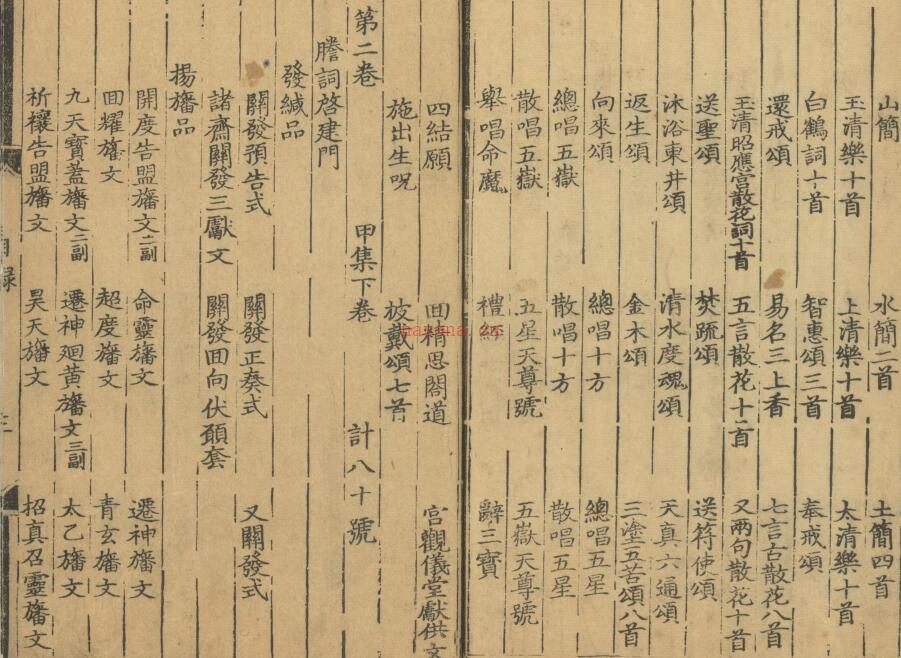 山簡 水簡二首 土簡四首
玉清樂十首 上清樂十首 太清樂十首
白鶴詞十首 智惠頌三首 奉戒頌
還戒頌 易名三上香 七言古散花八首
玉清昭應宮散花詞十首 五言散花十二首 又兩句散花十首
送聖頌 焚疏頌 送符使頌
沐浴東井頌 清水度魂頌 天真六通頌
返生頌 金木頌 三塗五苦頌八首
向來頌 總唱十方 總唱五星
總唱五嶽 散唱十方 散唱五星
散唱五嶽 五星天尊號 五嶽天尊號
舉唱命魔 禮 辭三寶
四結願 回精思閣道 宮觀儀堂獻供文
施出生呪 披戴頌七首
第二卷 甲集下卷 計八十號
謄詞啓建門
發緘品
關發預告式 關發正奏式 又關發式
諸齋關發三獻文 關發回向伏願套
揚旛品
開度告盟旛文二副 命靈旛文 遷神旛文
回耀旛文 超度旛文 青玄旛文
九天寶蓋旛文二副 遷神廻黄旛文三副 太乙旛文
祈禳告盟旛文 昊天旛文 招真召靈旛文
目録